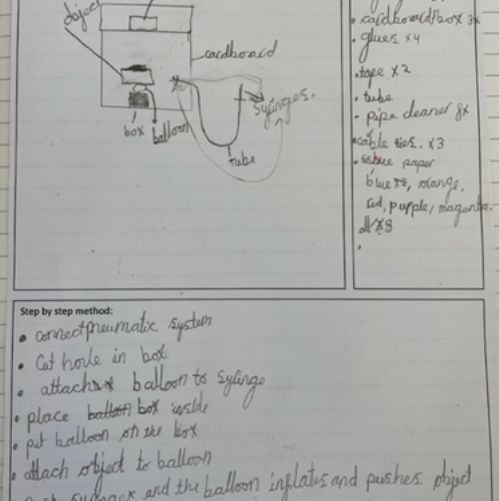 object
cardboard
syringes.
box
balloon
tube
• cardboard box 3x
• glues x4
• tape x2
• tube
• pipe cleaner 8x
• cable ties. x3
• paper
blue orange,
red, purple, magenta.
all x8
•
Step by step method:
• connect pneumatic system
• Cut hole in box
• attach balloon to syringe
• place box inside
• put balloon on the box
• attach object to balloon
and the balloon inflates and pushes object